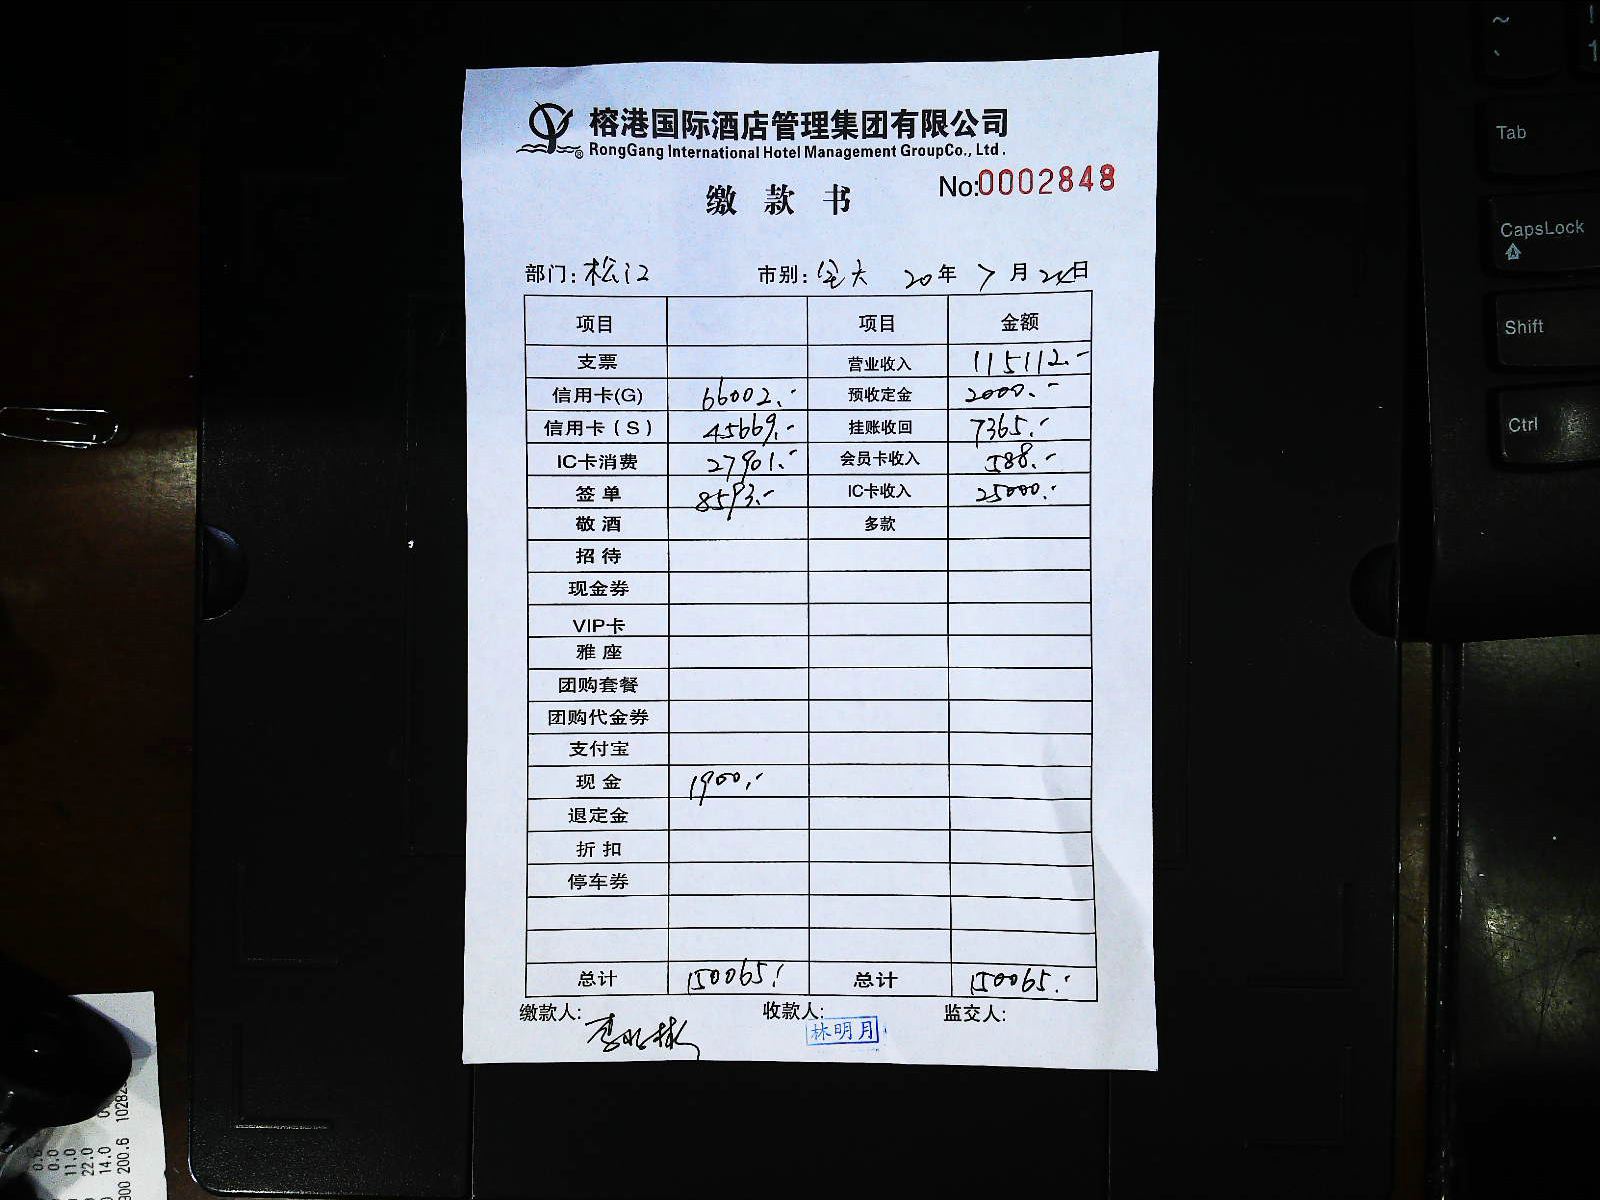 榕港国际酒店管理集团有限公司
RongGang International Hotel Management GroupCo., Ltd.
缴款书 No:0002848
部门: 松江 市别: 全天 20年 7月 日
项目 项目 金额
支票 营业收入 115112.-
信用卡(G) 66002.- 预收定金 2000.-
信用卡(S) 45669.- 挂账收回 7365.-
IC卡消费 27901.- 会员卡收入 588.-
签单 8593.- IC卡收入 25000.-
敬酒 多款
招待
现金券
VIP卡
雅座
团购套餐
团购代金券
支付宝
现金 1900.-
退定金
折扣
停车券
总计 150065.- 总计 150065.-
缴款人: 收款人: 林明月 监交人:
~
`
!
1
Tab
CapsLock
Shift
Ctrl
0.0
11.0
22.0
14.0
200.6